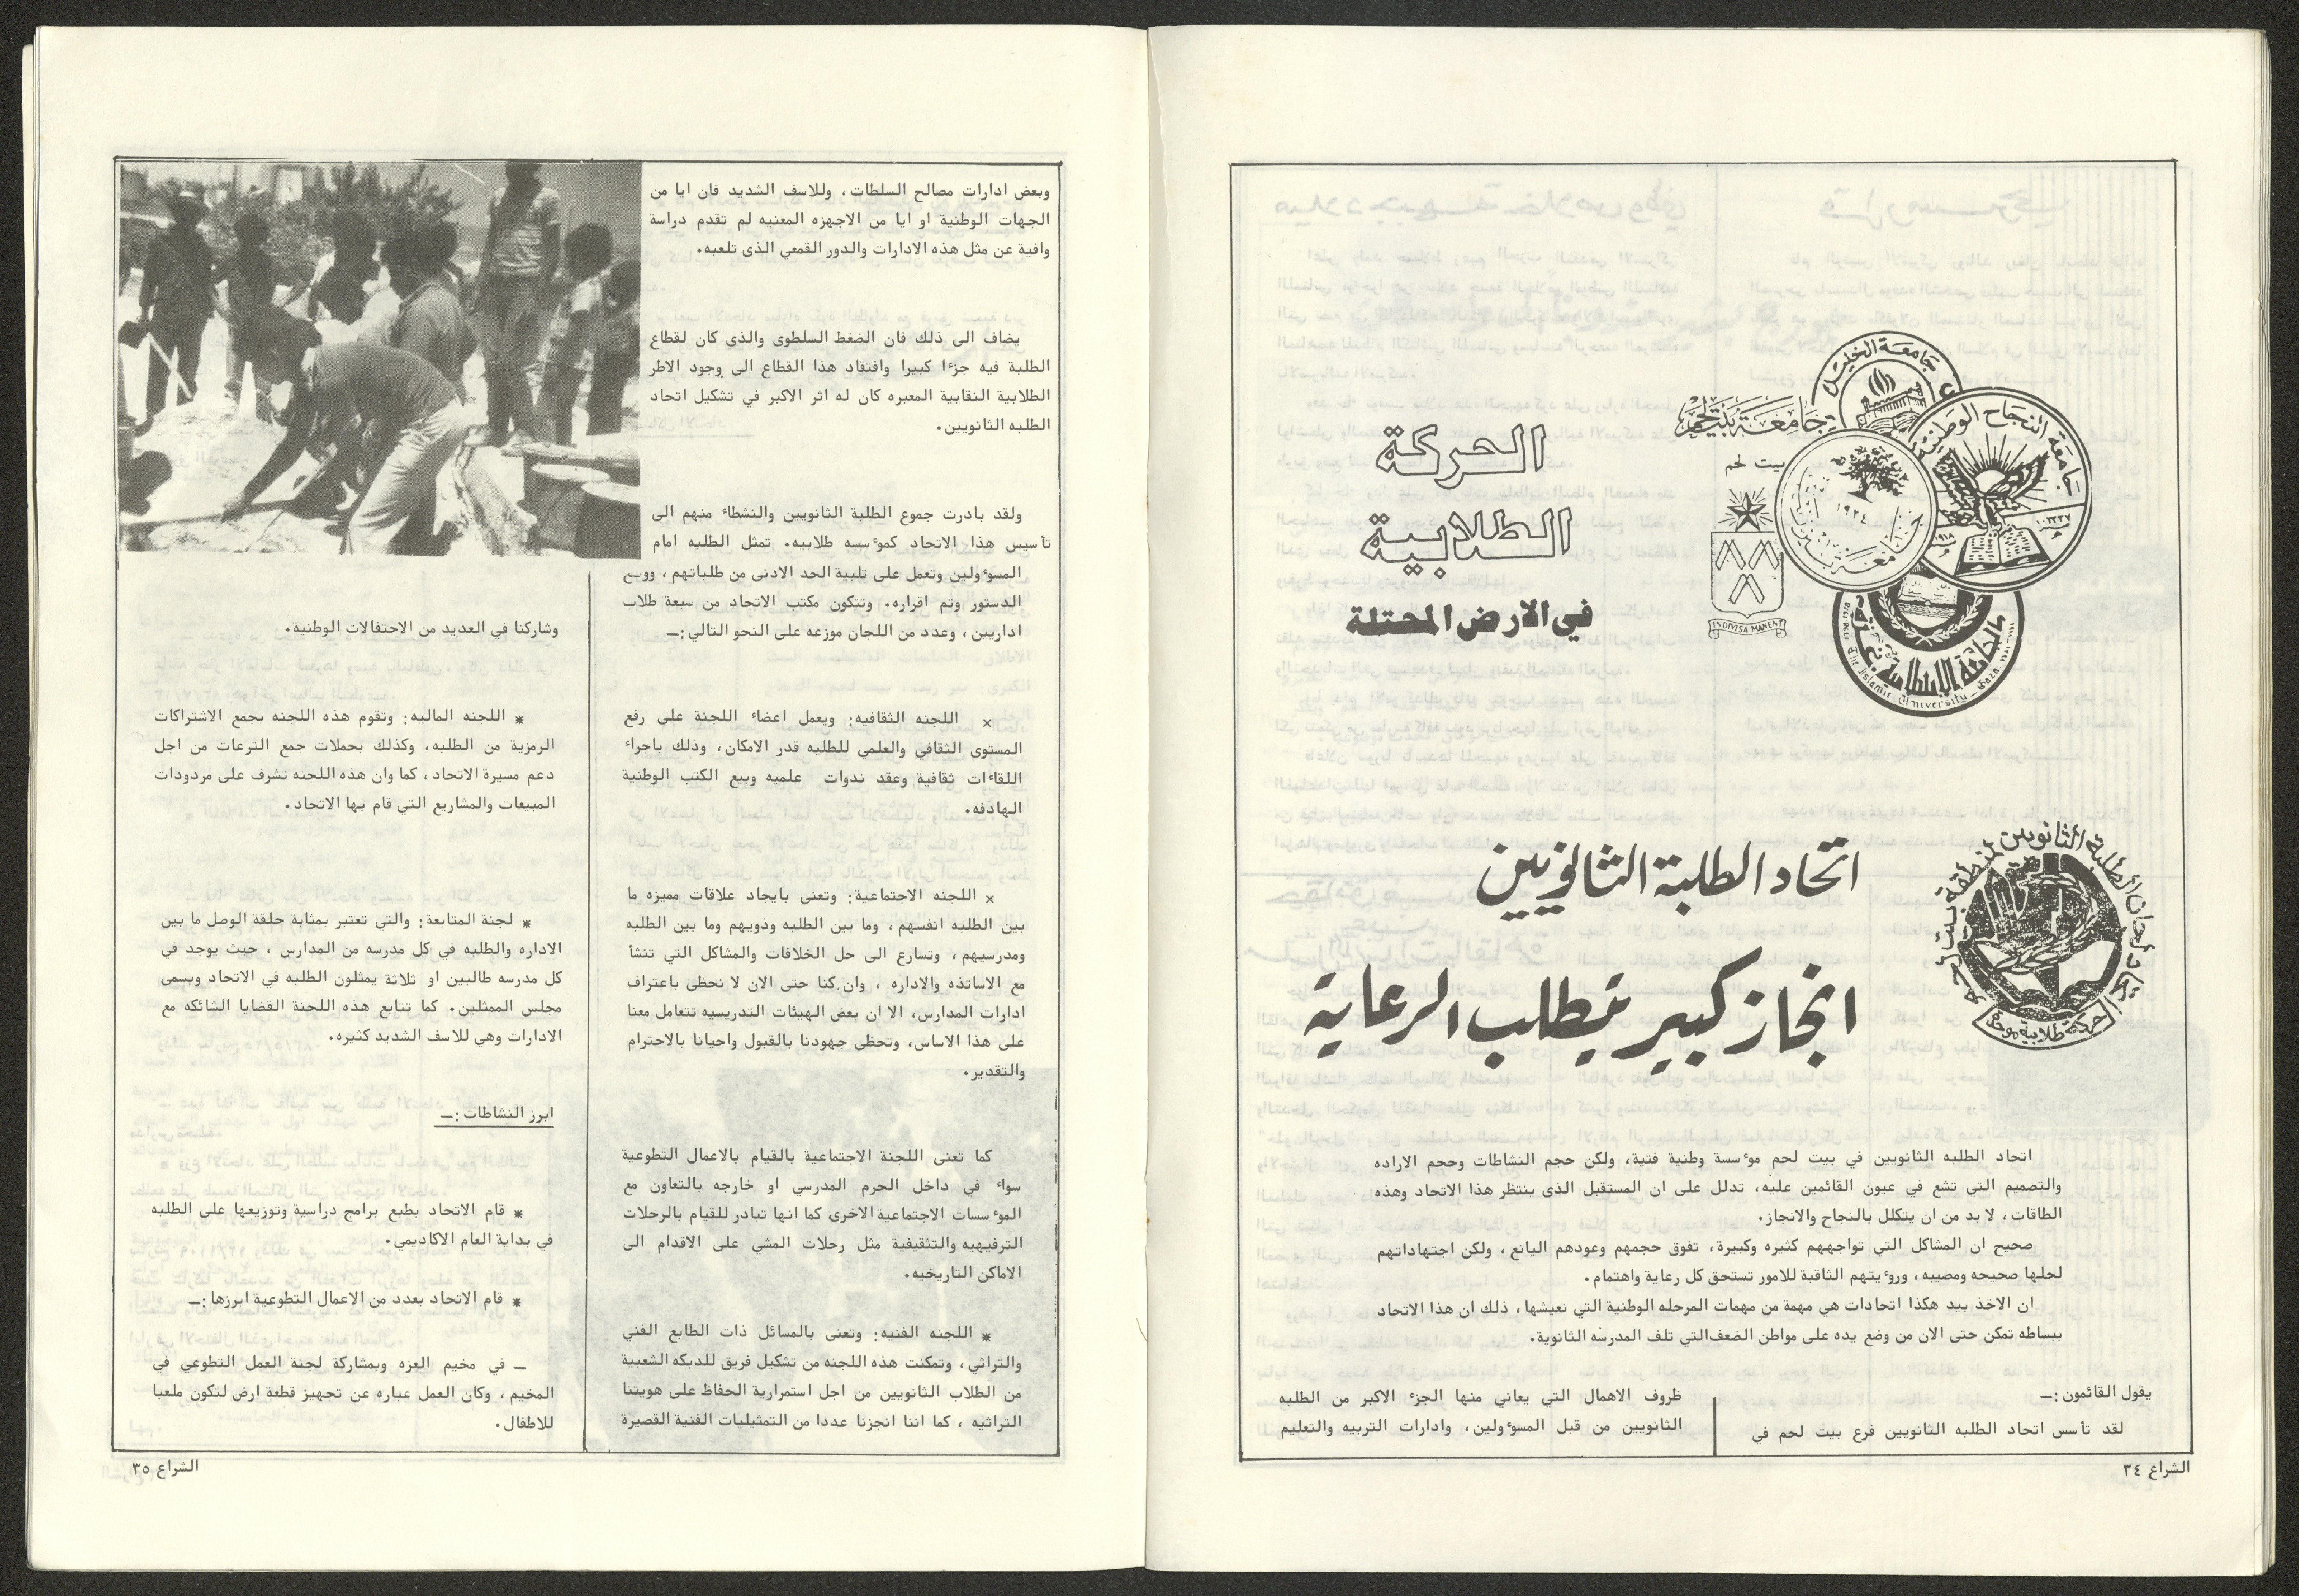 جامعة الخليل
جامعة النجاح الوطنية
جامعة بيت لحم
بيت لحم
١٩١٨
١٩٢٤
جامعة بيرزيت
INDIVISA MANENT
الجامعة الإسلامية بغزة
The Islamic University - Gaza
الحركة
الطلابية
في الارض المحتلة
اتحاد الطلبة الثانويين لمنطقة بيت لحم
حركة طلابية موحدة
اتحاد الطلبة الثانويين
انجاز كبير يتطلب الرعاية
اتحاد الطلبه الثانويين في بيت لحم موٴسسة وطنية فتية، ولكن حجم النشاطات وحجم الاراده
والتصميم التي تشع في عيون القائمين عليه، تدلل على ان المستقبل الذى ينتظر هذا الاتحاد وهذه
الطاقات، لا بد من ان يتكلل بالنجاح والانجاز.
صحيح ان المشاكل التي تواجههم كثيره وكبيرة، تفوق حجمهم وعودهم اليانع، ولكن اجتهاداتهم
لحلها صحيحه ومصيبه، وروٴيتهم الثاقبة للامور تستحق كل رعاية واهتمام.
ان الاخذ بيد هكذا اتحادات هي مهمة من مهمات المرحله الوطنية التي نعيشها، ذلك ان هذا الاتحاد
ببساطه تمكن حتى الان من وضع يده على مواطن الضعف التي تلف المدرسه الثانوية.
يقول القائمون:ـ
لقد تأسس اتحاد الطلبه الثانويين فرع بيت لحم في
ظروف الاهمال التي يعاني منها الجزء الاكبر من الطلبه
الثانويين من قبل المسوٴولين، وادارات التربيه والتعليم
الشراع ٣٤
وبعض ادارات مصالح السلطات، وللاسف الشديد فان ايا من
الجهات الوطنية او ايا من الاجهزه المعنيه لم تقدم دراسة
وافية عن مثل هذه الادارات والدور القمعي الذى تلعبه.
يضاف الى ذلك فان الضغط السلطوى والذى كان لقطاع
الطلبة فيه جزءا كبيرا وافتقاد هذا القطاع الى وجود الاطر
الطلابية النقابية المعبره كان له اثر الاكبر في تشكيل اتحاد
الطلبه الثانويين.
ولقد بادرت جموع الطلبة الثانويين والنشطاء منهم الى
تأسيس هذا الاتحاد كموٴسسه طلابيه. تمثل الطلبه امام
المسوٴولين وتعمل على تلبية الحد الادنى من طلباتهم، ووضع
الدستور وتم اقراره. وتتكون مكتب الاتحاد من سبعة طلاب
اداريين، وعدد من اللجان موزعه على النحو التالي:ـ
× اللجنه الثقافيه: ويعمل اعضاء اللجنة على رفع
المستوى الثقافي والعلمي للطلبه قدر الامكان، وذلك باجراء
اللقاءات ثقافية وعقد ندوات علميه وبيع الكتب الوطنية
الهادفه.
× اللجنه الاجتماعية: وتعنى بايجاد علاقات مميزه ما
بين الطلبه انفسهم، وما بين الطلبه وذويهم وما بين الطلبه
ومدرسيهم، وتسارع الى حل الخلافات والمشاكل التي تنشأ
مع الاساتذه والاداره، وان كنا حتى الان لا نحظى باعتراف
ادارات المدارس، الا ان بعض الهيئات التدريسيه تتعامل معنا
على هذا الاساس، وتحظى جهودنا بالقبول واحيانا بالاحترام
والتقدير.
كما تعنى اللجنة الاجتماعية بالقيام بالاعمال التطوعية
سواء في داخل الحرم المدرسي او خارجه بالتعاون مع
الموٴسسات الاجتماعية الاخرى كما انها تبادر للقيام بالرحلات
الترفيهيه والتثقيفية مثل رحلات المشي على الاقدام الى
الاماكن التاريخيه.
* اللجنه الفنيه: وتعنى بالمسائل ذات الطابع الفني
والتراثي، وتمكنت هذه اللجنه من تشكيل فريق للدبكه الشعبية
من الطلاب الثانويين من اجل استمرارية الحفاظ على هويتنا
التراثيه، كما اننا انجزنا عددا من التمثيليات الفنية القصيرة
وشاركنا في العديد من الاحتفالات الوطنية.
* اللجنه الماليه: وتقوم هذه اللجنه بجمع الاشتراكات
الرمزية من الطلبه، وكذلك بحملات جمع الترعات من اجل
دعم مسيرة الاتحاد، كما وان هذه اللجنه تشرف على مردودات
المبيعات والمشاريع التي قام بها الاتحاد.
* لجنة المتابعة: والتي تعتبر بمثابة حلقة الوصل ما بين
الاداره والطلبه في كل مدرسه من المدارس، حيث يوجد في
كل مدرسه طالبين او ثلاثة يمثلون الطلبه في الاتحاد ويسمى
مجلس الممثلين. كما تتابع هذه اللجنة القضايا الشائكه مع
الادارات وهي للاسف الشديد كثيره.
ابرز النشاطات:ـ
* قام الاتحاد بطبع برامج دراسية وتوزيعها على الطلبه
في بداية العام الاكاديمي.
* قام الاتحاد بعدد من الاعمال التطوعية ابرزها:ـ
ـ في مخيم العزه وبمشاركة لجنة العمل التطوعي في
المخيم، وكان العمل عباره عن تجهيز قطعة ارض لتكون ملعبا
للاطفال.
الشراع ٣٥